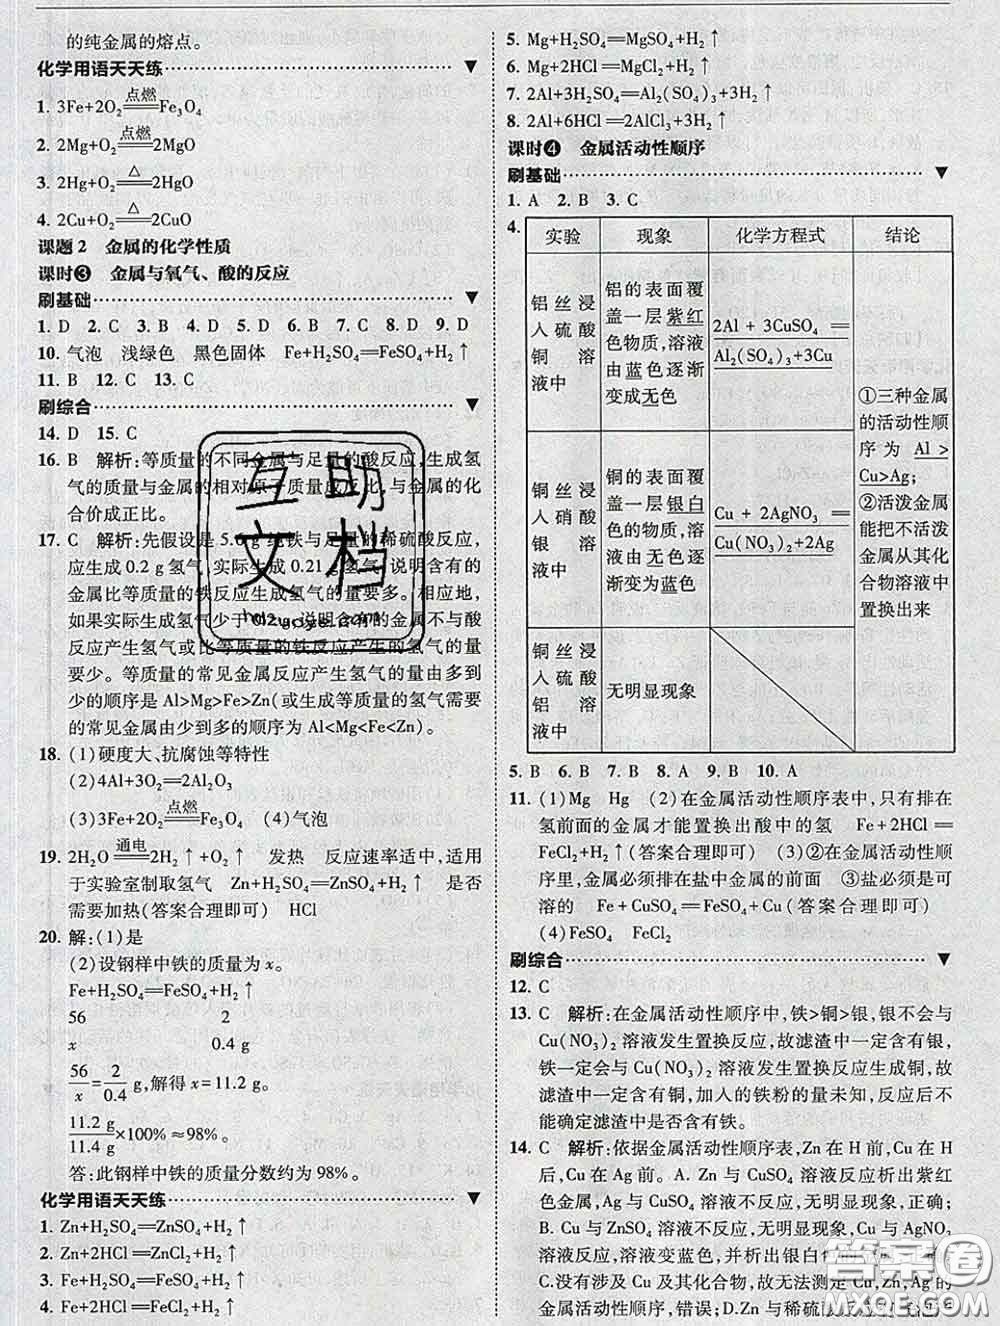 的纯金属的熔点。
化学用语天天练
1. 3Fe+2O₂ 点燃══ Fe₃O₄
2. 2Mg+O₂ 点燃══ 2MgO
3. 2Hg+O₂ △══ 2HgO
4. 2Cu+O₂ △══ 2CuO
课题 2 金属的化学性质
课时❸ 金属与氧气、酸的反应
刷基础
1. D 2. C 3. B 4. D 5. D 6. B 7. C 8. D 9. D
10. 气泡 浅绿色 黑色固体 Fe+H₂SO₄══FeSO₄+H₂↑
11. B 12. C 13. C
刷综合
14. D 15. C
16. B 解析:等质量的不同金属与足量的酸反应,生成氢
气的质量与金属的相对原子质量成反比,与金属的化
合价成正比。
17. C 解析:先假设是 5.6 g 纯铁与足量的稀硫酸反应,
应生成 0.2 g 氢气,实际生成 0.21 g 氢气,说明含有的
金属比等质量的铁反应生成氢气的量要多。相应地,
如果实际生成氢气少于 0.2 g,说明含有的金属不与酸
反应产生氢气或比等质量的铁反应产生的氢气的量
要少。等质量的常见金属反应产生氢气的量由多到
少的顺序是 Al>Mg>Fe>Zn(或生成等质量的氢气需要
的常见金属由少到多的顺序为 Al<Mg<Fe<Zn)。
18. (1)硬度大、抗腐蚀等特性
(2)4Al+3O₂══2Al₂O₃
(3)3Fe+2O₂ 点燃══ Fe₃O₄ (4)气泡
19. 2H₂O 通电══ 2H₂↑+O₂↑ 发热 反应速率适中,适用
于实验室制取氢气 Zn+H₂SO₄══ZnSO₄+H₂↑ 是否
需要加热(答案合理即可) HCl
20. 解:(1)是
(2)设钢样中铁的质量为 x。
Fe+H₂SO₄══FeSO₄+H₂↑
56 2
x 0.4 g
56/x=2/0.4 g,解得 x=11.2 g。
11.2 g/11.4 g×100%≈98%。
答:此钢样中铁的质量分数约为 98%。
化学用语天天练
1. Zn+H₂SO₄══ZnSO₄+H₂↑
2. Zn+2HCl══ZnCl₂+H₂↑
3. Fe+H₂SO₄══FeSO₄+H₂↑
4. Fe+2HCl══FeCl₂+H₂↑
5. Mg+H₂SO₄══MgSO₄+H₂↑
6. Mg+2HCl══MgCl₂+H₂↑
7. 2Al+3H₂SO₄══Al₂(SO₄)₃+3H₂↑
8. 2Al+6HCl══2AlCl₃+3H₂↑
课时❹ 金属活动性顺序
刷基础
1. A 2. B 3. C
4.
实验 现象 化学方程式 结论
铝丝浸
入硫酸
铜溶
液中
铝的表面覆
盖一层紫红
色物质,溶液
由蓝色逐渐
变成无色
2Al + 3CuSO₄ ══
Al₂(SO₄)₃+3Cu
铜丝浸
入硝酸
银溶
液中
铜的表面覆
盖一层银白
色的物质,溶
液由无色逐
渐变为蓝色
Cu + 2AgNO₃ ══
Cu(NO₃)₂+2Ag
铜丝浸
入硫酸
铝溶
液中
无明显现象
①三种金属
的活动性顺
序为 Al >
Cu>Ag;
②活泼金属
能把不活泼
金属从其化
合物溶液中
置换出来
5. B 6. B 7. B 8. A 9. B 10. A
11. (1)Mg Hg (2)在金属活动性顺序表中,只有排在
氢前面的金属才能置换出酸中的氢 Fe+2HCl══
FeCl₂+H₂↑(答案合理即可) (3)②在金属活动性顺
序里,金属必须排在盐中金属的前面 ③盐必须是可
溶的 Fe+CuSO₄══FeSO₄+Cu(答案合理即可)
(4)FeSO₄ FeCl₂
刷综合
12. C
13. C 解析:在金属活动性顺序中,铁>铜>银,银不会与
Cu(NO₃)₂ 溶液发生置换反应,故滤渣中一定含有银,
铁一定会与 Cu(NO₃)₂ 溶液发生置换反应生成铜,故
滤渣中一定含有铜,加入的铁粉的量未知,反应后不
能确定滤渣中是否含有铁。
14. C 解析:依据金属活动性顺序表,Zn 在 H 前,Cu 在 H
后,Cu 在 Ag 前。A. Zn 与 CuSO₄ 溶液反应析出紫红
色金属,Ag 与 CuSO₄ 溶液不反应,无明显现象,正确;
B. Cu 与 ZnSO₄ 溶液不反应,无明显现象,Cu 与 AgNO₃
溶液反应,溶液变蓝色,并析出银白
C.没有涉及 Cu 及其化合物,故无法测定 Cu,Zn,Ag 的
金属活动性顺序,错误;D.Zn 与稀硫酸反应
互助
文档
答案圈
MXQE.COM